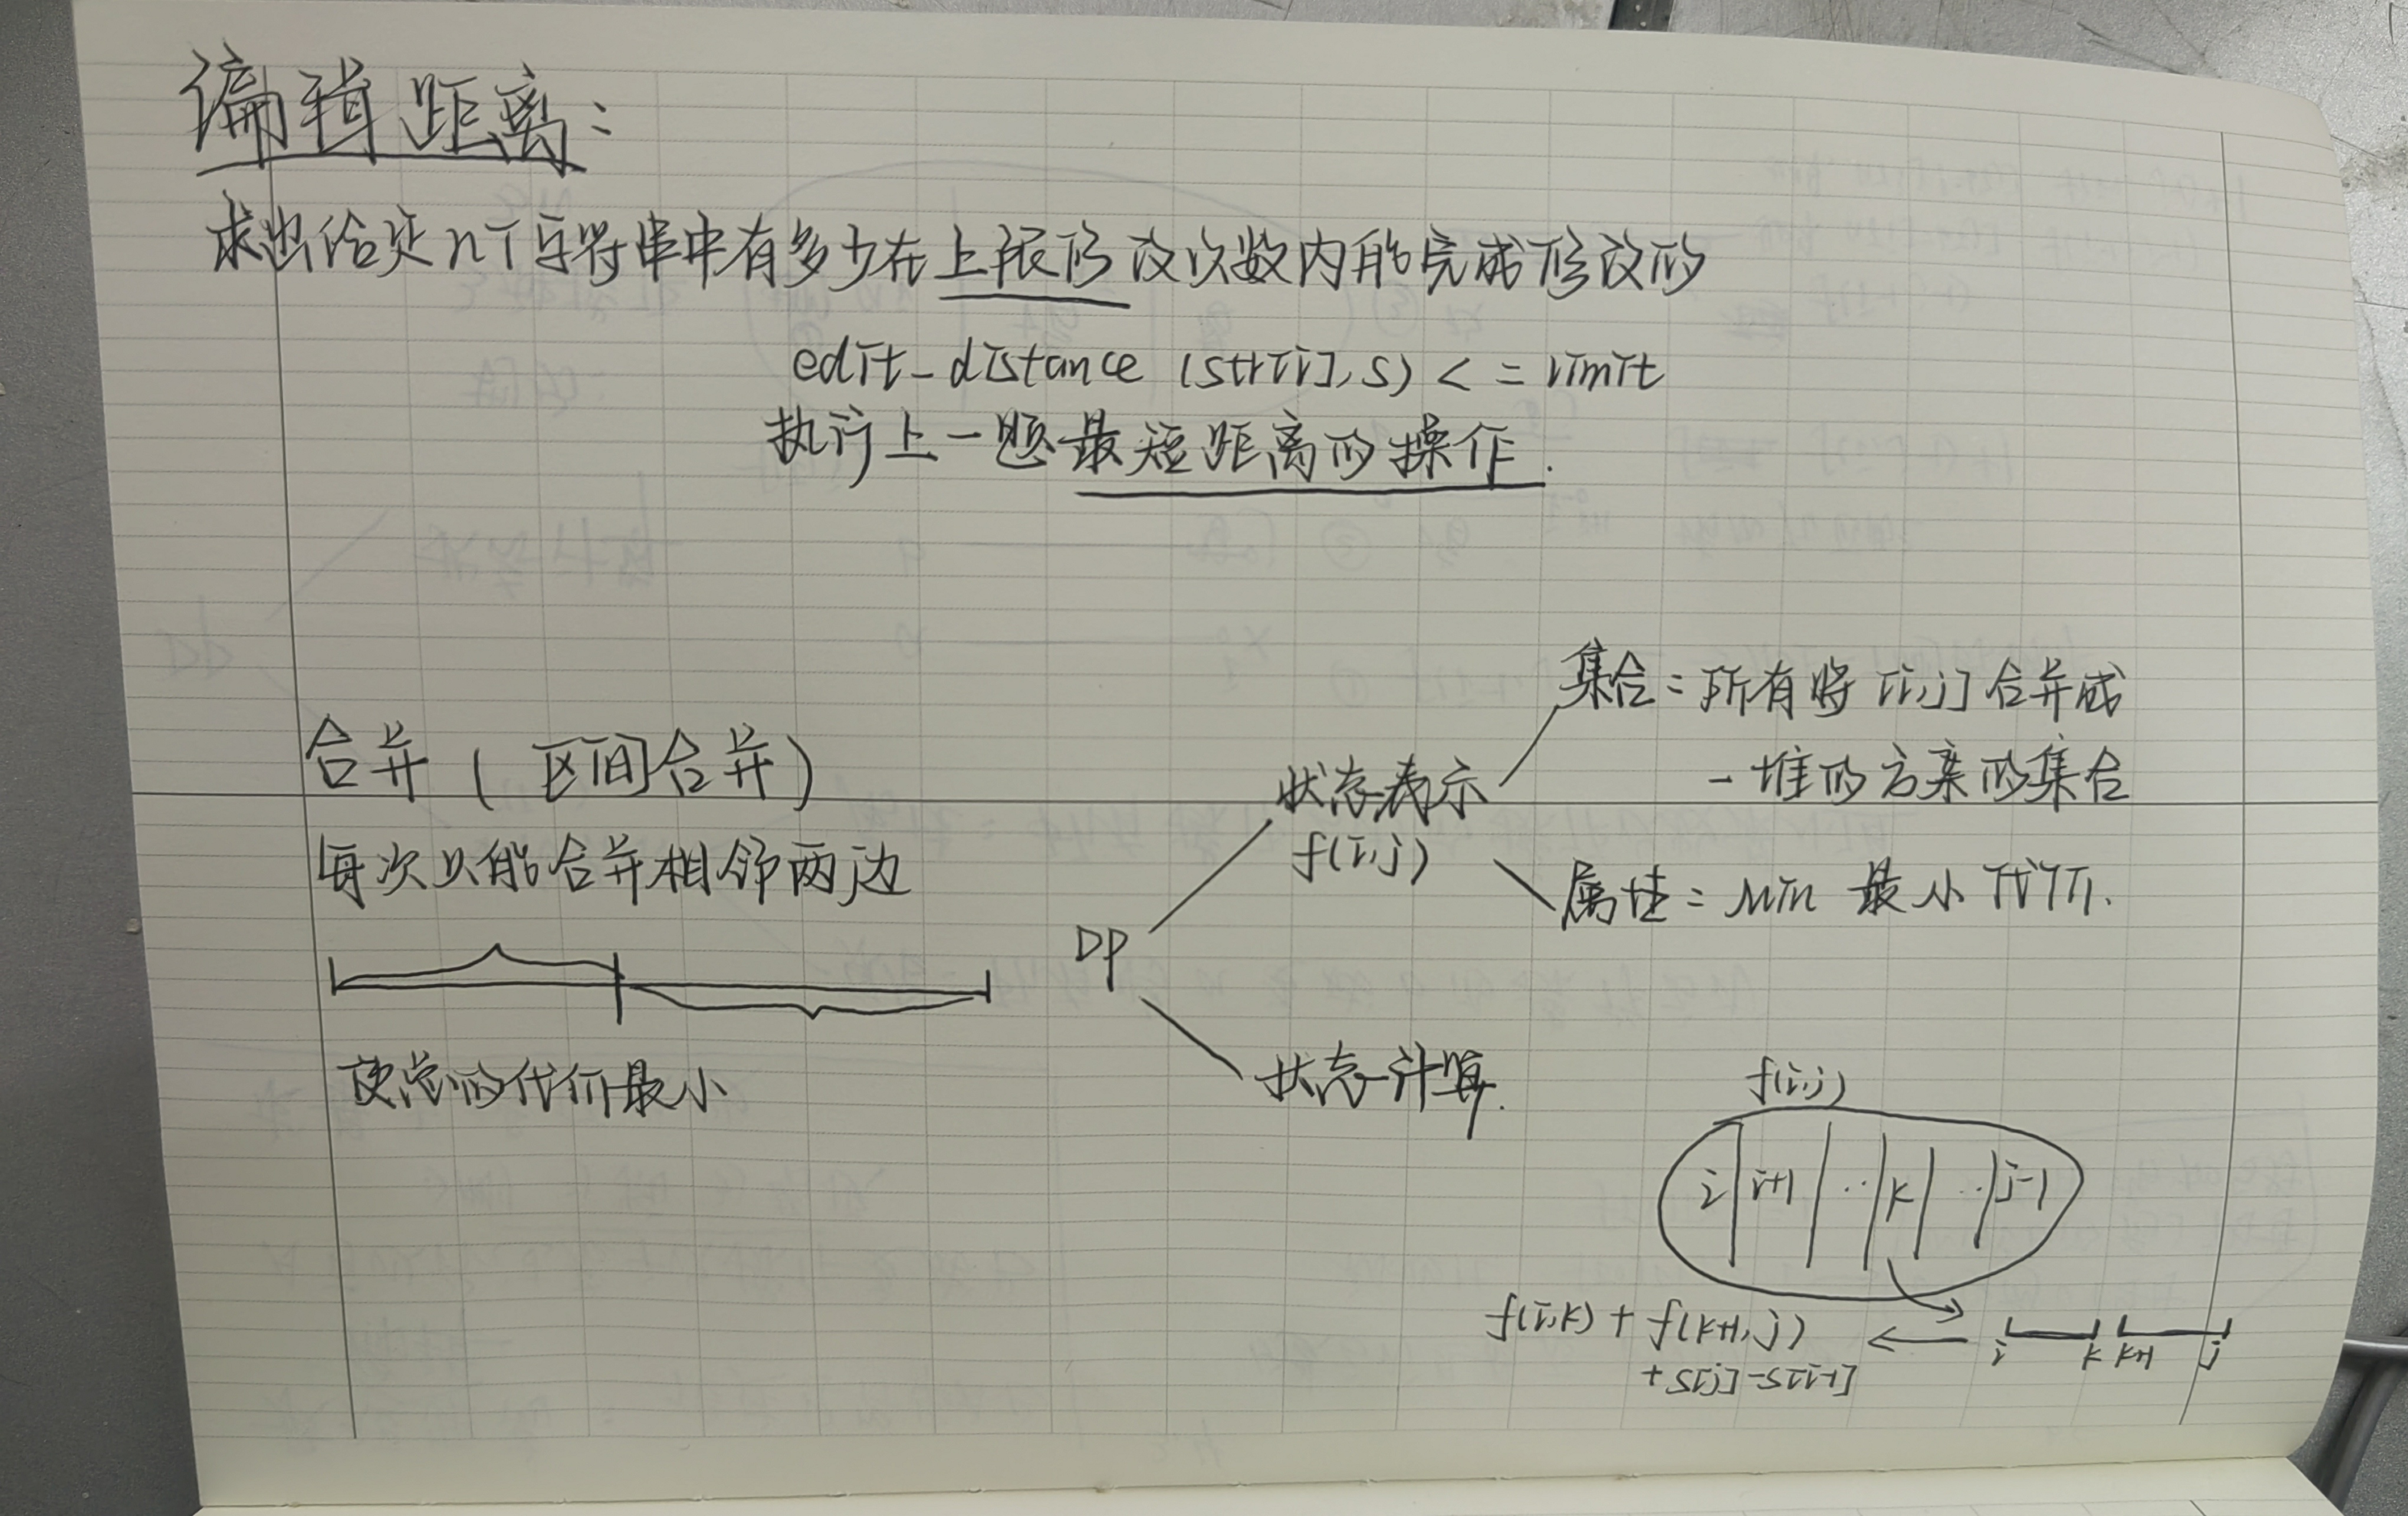 编辑距离：
求出给定n个字符串中有多少在上限修改次数内能完成修改的
edit_distance (str[i], s) < = limit
执行上一题最短距离的操作.
合并 ( 区间合并 )
每次只能合并相邻两边
使总的代价最小
DP
状态表示
f(i,j)
集合：所有将 [i,j] 合并成
一堆的方案的集合
属性：Min 最小代价.
状态计算.
f(i,j)
i i+1 ·· k ·· j-1
f(i,k) + f(k+1, j)
+ s[j] - s[i-1]
i k k+1 j